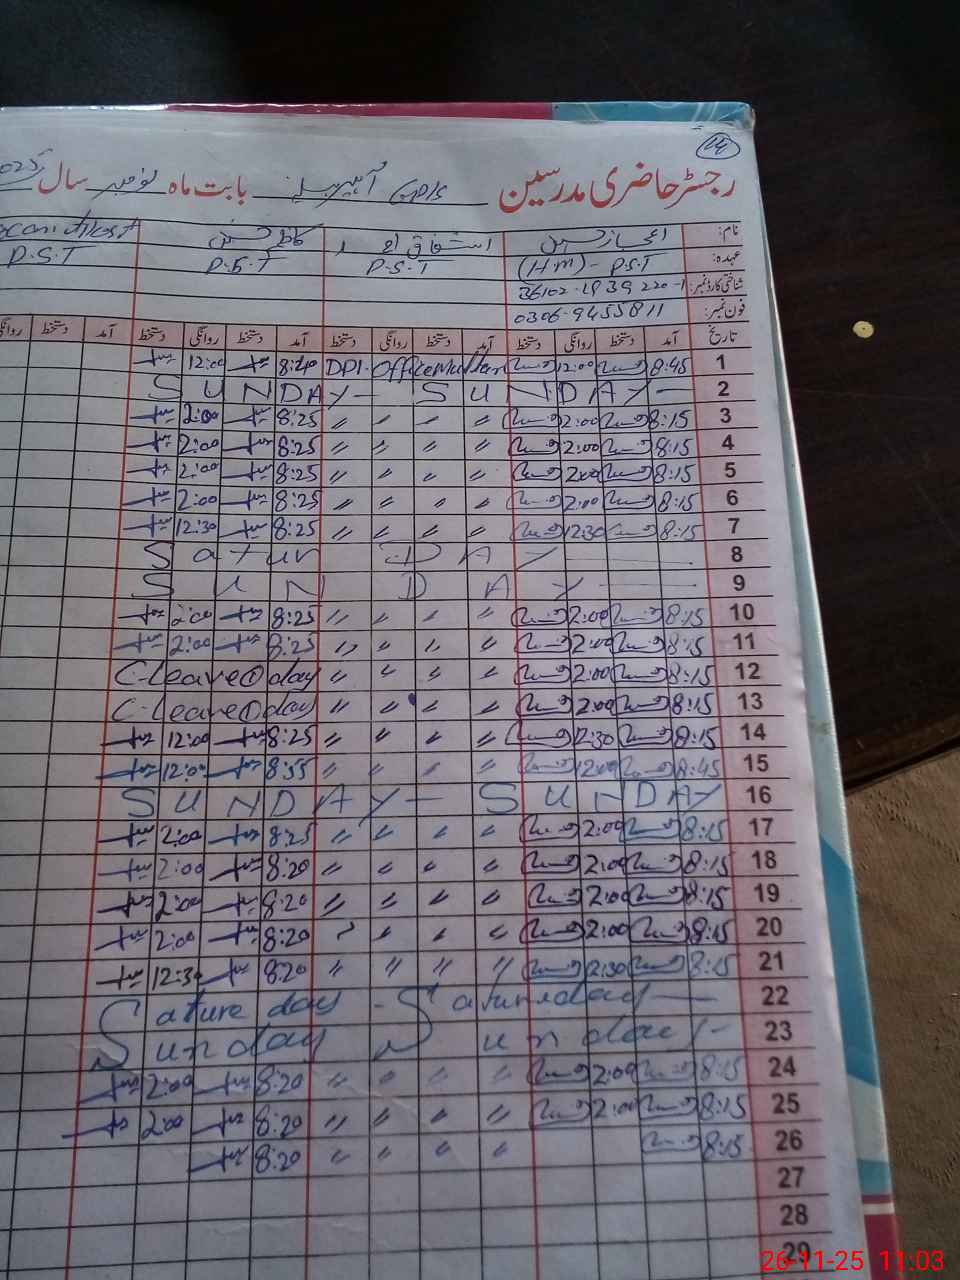 14
رجسٹر حاضری مدرسین GPS بابت ماہ نومبر سال 2025
نام: اعجاز حسین اشفاق احمد کاظم حسین
عہدہ: (Hm) - P.S.T P.S.T P.S.T P.S.T
شناختی کارڈ نمبر: 36102-1939220-1
فون نمبر: 0306-9455811
تاریخ آمد دستخط روانگی دستخط آمد دستخط روانگی دستخط آمد دستخط روانگی دستخط آمد دستخط روانگی
1 8:45 12:00 DPI-Office Multan 8:40 12:00
2 SUNDAY - SUNDAY -
3 8:15 2:00 " " " " 8:25 2:00
4 8:15 2:00 " " " " 8:25 2:00
5 8:15 2:00 " " " " 8:25 2:00
6 8:15 2:00 " " " " 8:25 2:00
7 8:15 12:30 " " " " 8:25 12:30
8 Satur DAY
9 SUNDAY
10 8:15 2:00 " " " " 8:25 2:00
11 8:15 2:00 " " " " 8:25 2:00
12 8:15 2:00 " " " " C-Leave 1 day
13 8:15 2:00 " " " " C-Leave 1 day
14 8:15 12:30 " " " " 8:25 12:00
15 8:45 12:00 " " " " 8:55 12:00
16 SUNDAY - SUNDAY
17 8:15 2:00 " " " " 8:25 2:00
18 8:15 2:00 " " " " 8:20 2:00
19 8:15 2:00 " " " " 8:20 2:00
20 8:15 2:00 " " " " 8:20 2:00
21 8:15 12:30 " " " " 8:20 12:30
22 Sature day - Saturday
23 Sunday Sunday -
24 8:15 2:00 " " " " 8:20 2:00
25 8:15 2:00 " " " " 8:20 2:00
26 8:15 " " " " 8:20
27
28
29
26-11-25 11:03